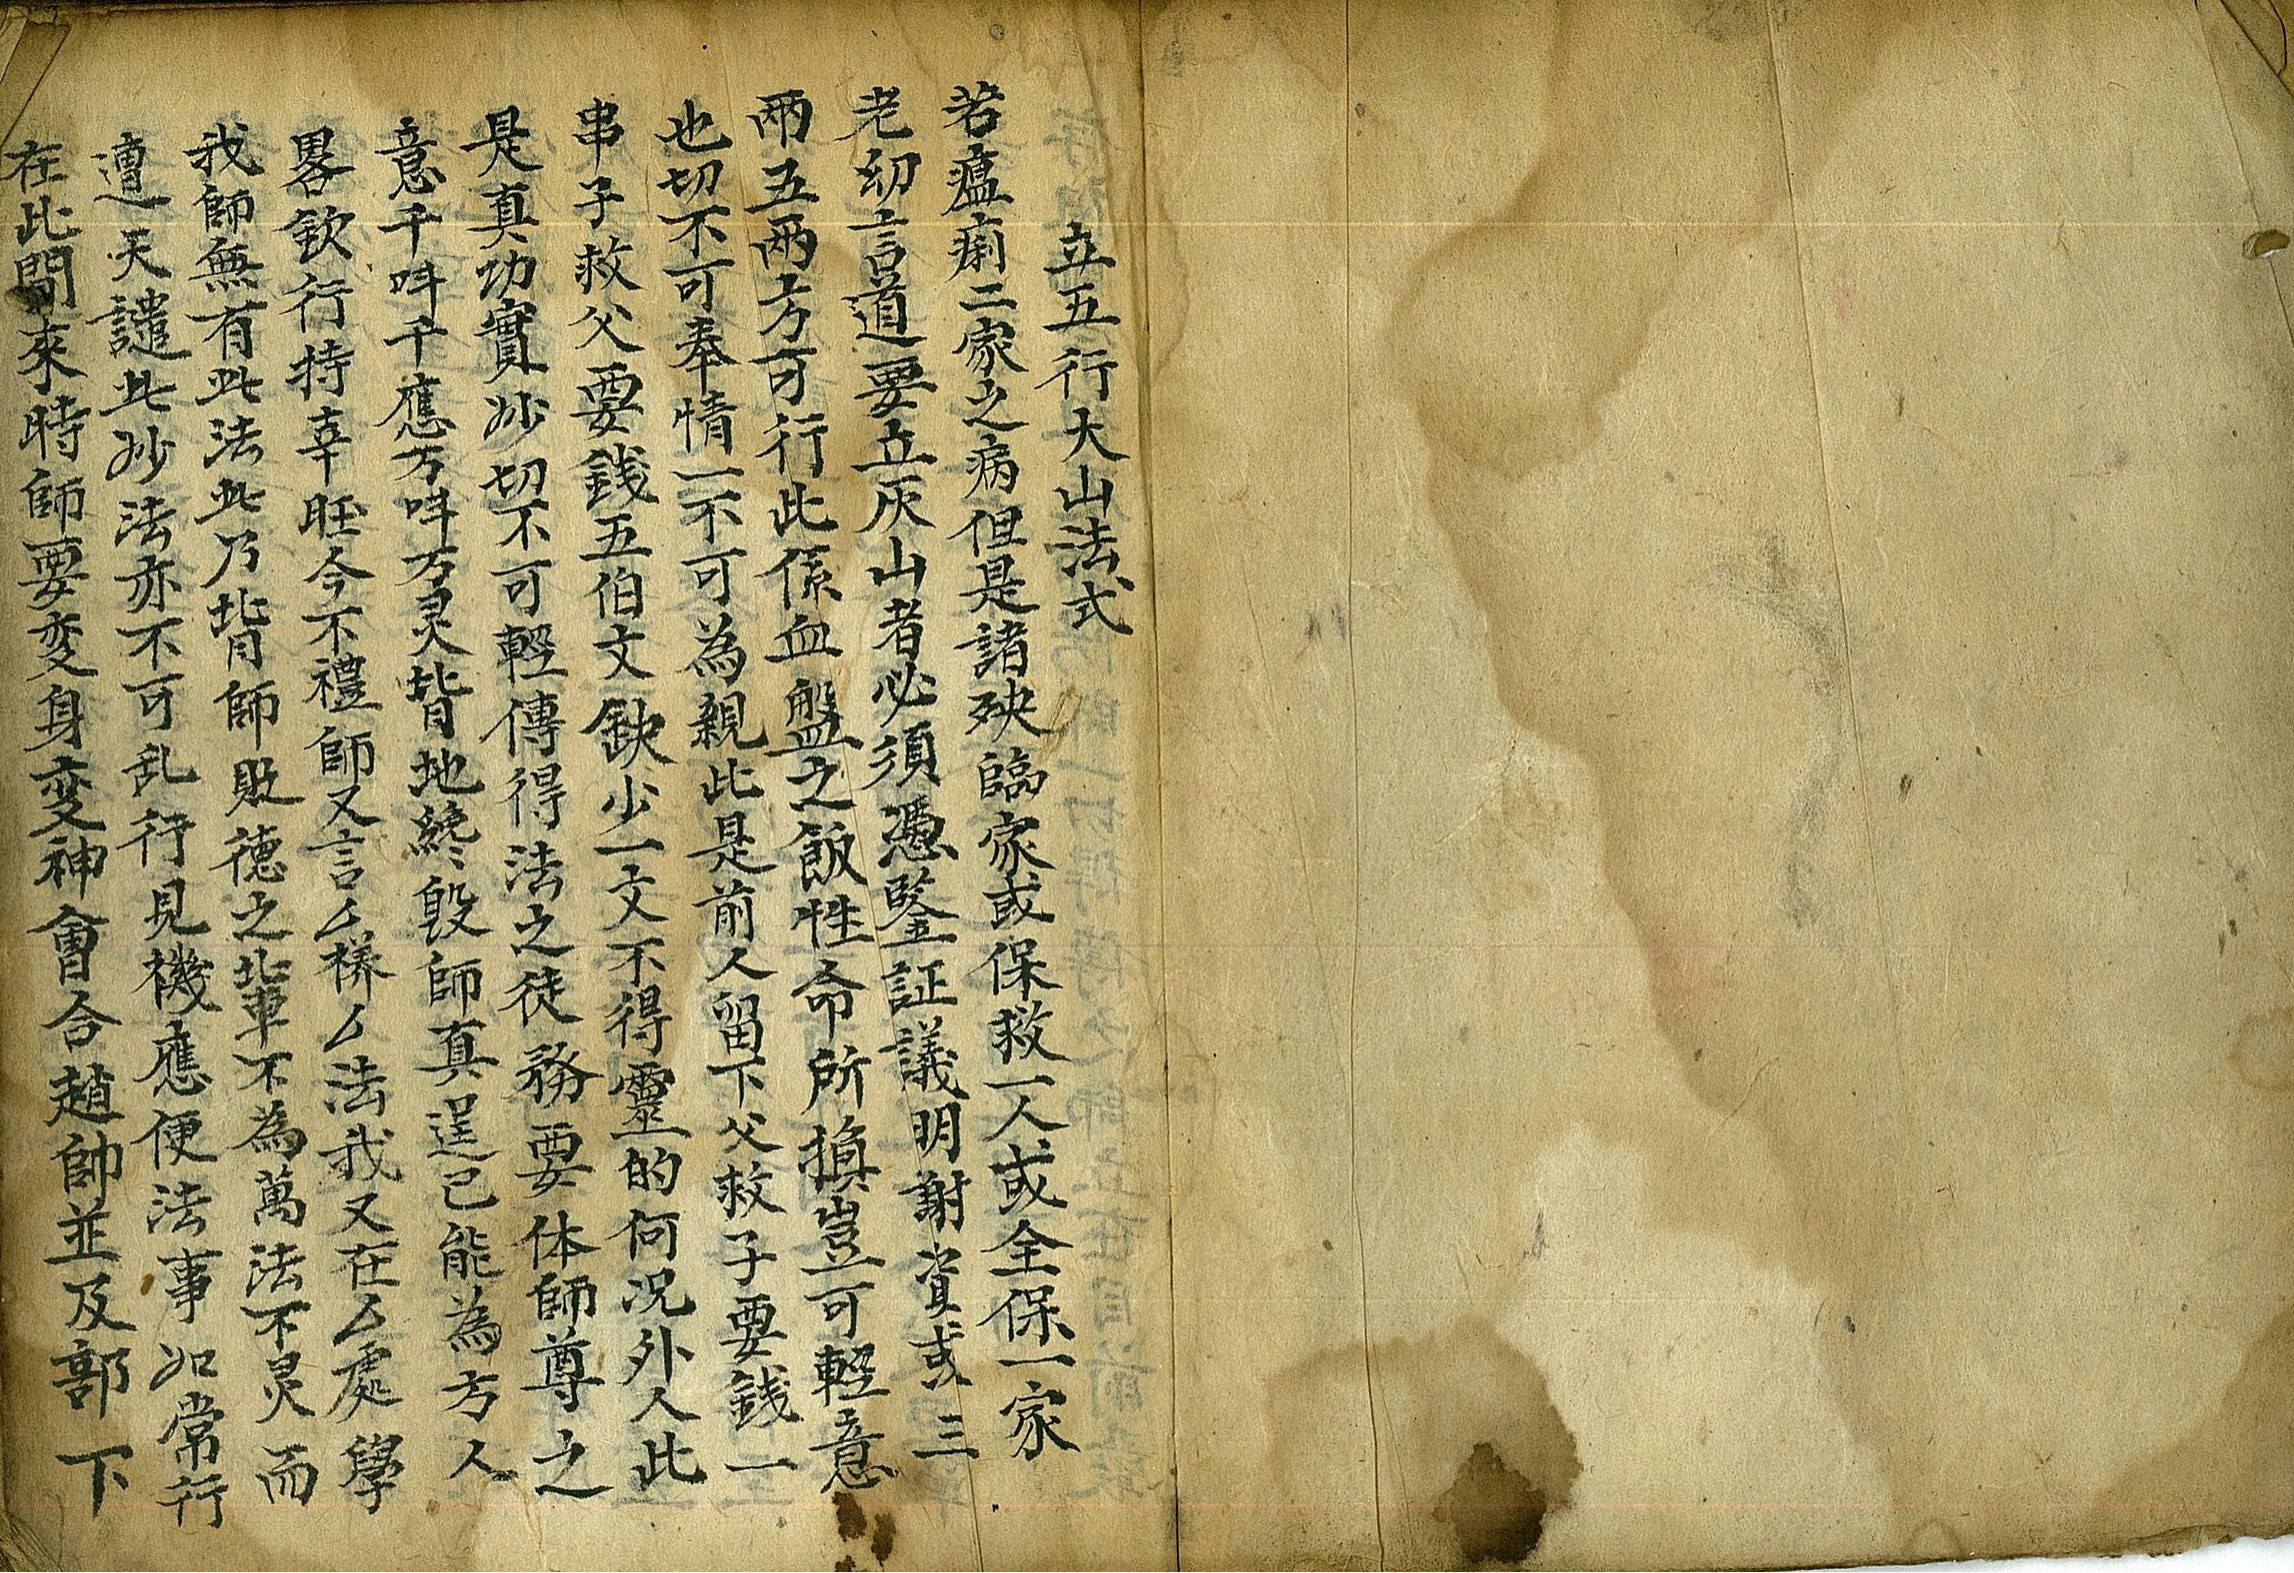 立五行大山法式
若瘟痢二家之病但是諸殃臨家或保救一人或全保一家
老幼言道要立灰山者必須憑鑒証議明謝資或三
兩五两上方可行此係血盤之飯性命所損豈可輕意
也切不可奉情一不可為親此是前人留下父救子要錢一
串子救父要錢五伯文缺少一文不得靈的何况外人此
是真功實妙切不可輕傳得法之徒務要体師尊之
意千呌千應万呌万灵背地終毀師真逞己能為方人
畧欽行持幸旺今不禮師又言厶樣厶法我又在厶處學
我師無有此法此乃背師敗德之輩不為萬法不灵而
遭天譴此妙法亦不可乱行見機應便法事如常行
在此間來時師要变身变神會合趙帥並及部下